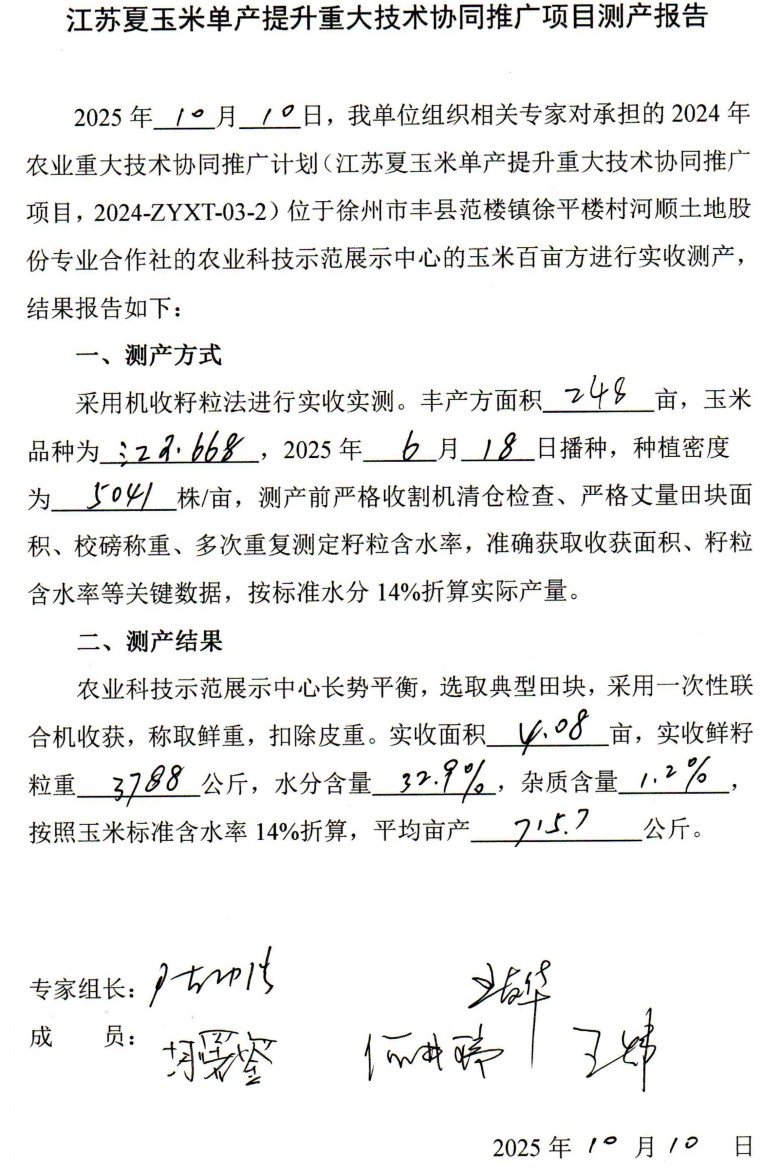 江苏夏玉米单产提升重大技术协同推广项目测产报告
2025 年 10 月 10 日，我单位组织相关专家对承担的 2024 年
农业重大技术协同推广计划（江苏夏玉米单产提升重大技术协同推广
项目，2024-ZYXT-03-2）位于徐州市丰县范楼镇徐平楼村河顺土地股
份专业合作社的农业科技示范展示中心的玉米百亩方进行实收测产，
结果报告如下：
一、测产方式
采用机收籽粒法进行实收实测。丰产方面积 248 亩，玉米
品种为 668，2025 年 6 月 18 日播种，种植密度
为 5041 株/亩，测产前严格收割机清仓检查、严格丈量田块面
积、校磅称重、多次重复测定籽粒含水率，准确获取收获面积、籽粒
含水率等关键数据，按标准水分 14%折算实际产量。
二、测产结果
农业科技示范展示中心长势平衡，选取典型田块，采用一次性联
合机收获，称取鲜重，扣除皮重。实收面积 4.08 亩，实收鲜籽
粒重 3788 公斤，水分含量 32.9%，杂质含量 1.2%，
按照玉米标准含水率 14%折算，平均亩产 715.7 公斤。
专家组长：
成 员：
2025 年 10 月 10 日